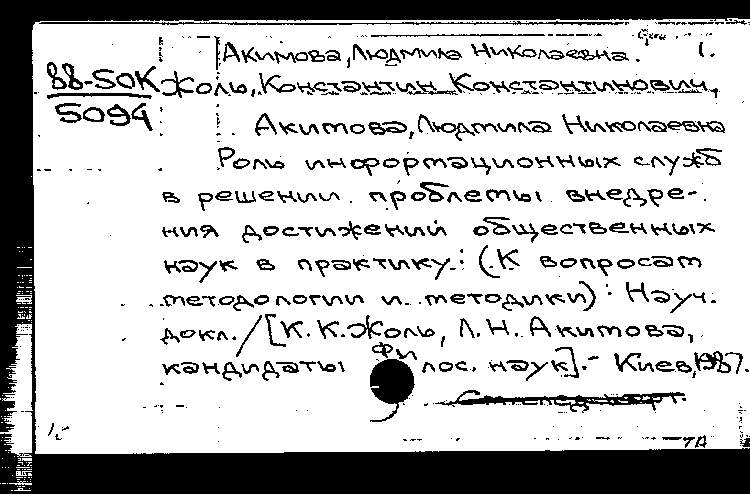 Акимова, Людмила Николаевна. 1.
88-50К Жоль, Константин Константинович,
5094
Акимова, Людмила Николаевна
Роль информационных служб
в решении проблемы внедре-
ния достижений общественных
наук в практику: (К вопросам
методологии и методики): Науч.
докл. / [К. К. Жоль, Л. Н. Акимова,
кандидаты филос. наук]. - Киев, 1987.